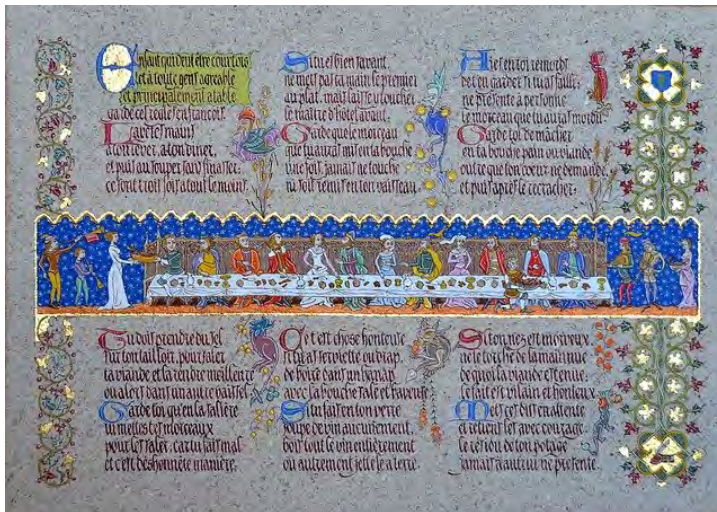 Enfant qui veut être courtois
et à toute gent agreable
et principalement à table
garde ces en francois
Lave tes mains
à ton lever, à ton diner,
et puis au souper sans finasser,
ce sont trois fois à tout le moins.
Si tu es bien savant
ne mets pas ta main le premier
au plat, mais laisse y toucher
le maître d'hôtel avant.
Garde que le morceau
que tu auras mis en ta bouche
une fois, jamais ne touche
ni soit remis en ton vaisseau.
Aie en toi remords
de t'en garder si tu as failli,
ne présente à personne
le morceau que tu auras mordu
Garde toi de mâcher
en ta bouche pain ou viande
outre que ton coeur ne demande
et puis après le recracher.
Tu dois prendre du sel
sur ton tailloir, pour saler
ta viande et la rendre meilleure
ou alors dans un autre vaissel
Garde ton qu'en la salière
tu mettes tes morceaux
pour les saler, car tu fais mal
et c'est deshonnète manière.
C'est chose honteuse
si tu as serviette ou drap
de boire dans un hanap
avec la bouche sale et baveuse
Si tu fais en ton verre
soupe de vin aucunement,
bois tout le vin entièrement
ou autrement jette le a terre
Si ton nez est morveux
ne le torche de la main nue
de quoi la viande est tenue:
le fait est vilain et honteux
Mets ces dits en attente
et retiens les avec courage
le résidu de ton potage
jamais à autrui ne présente.